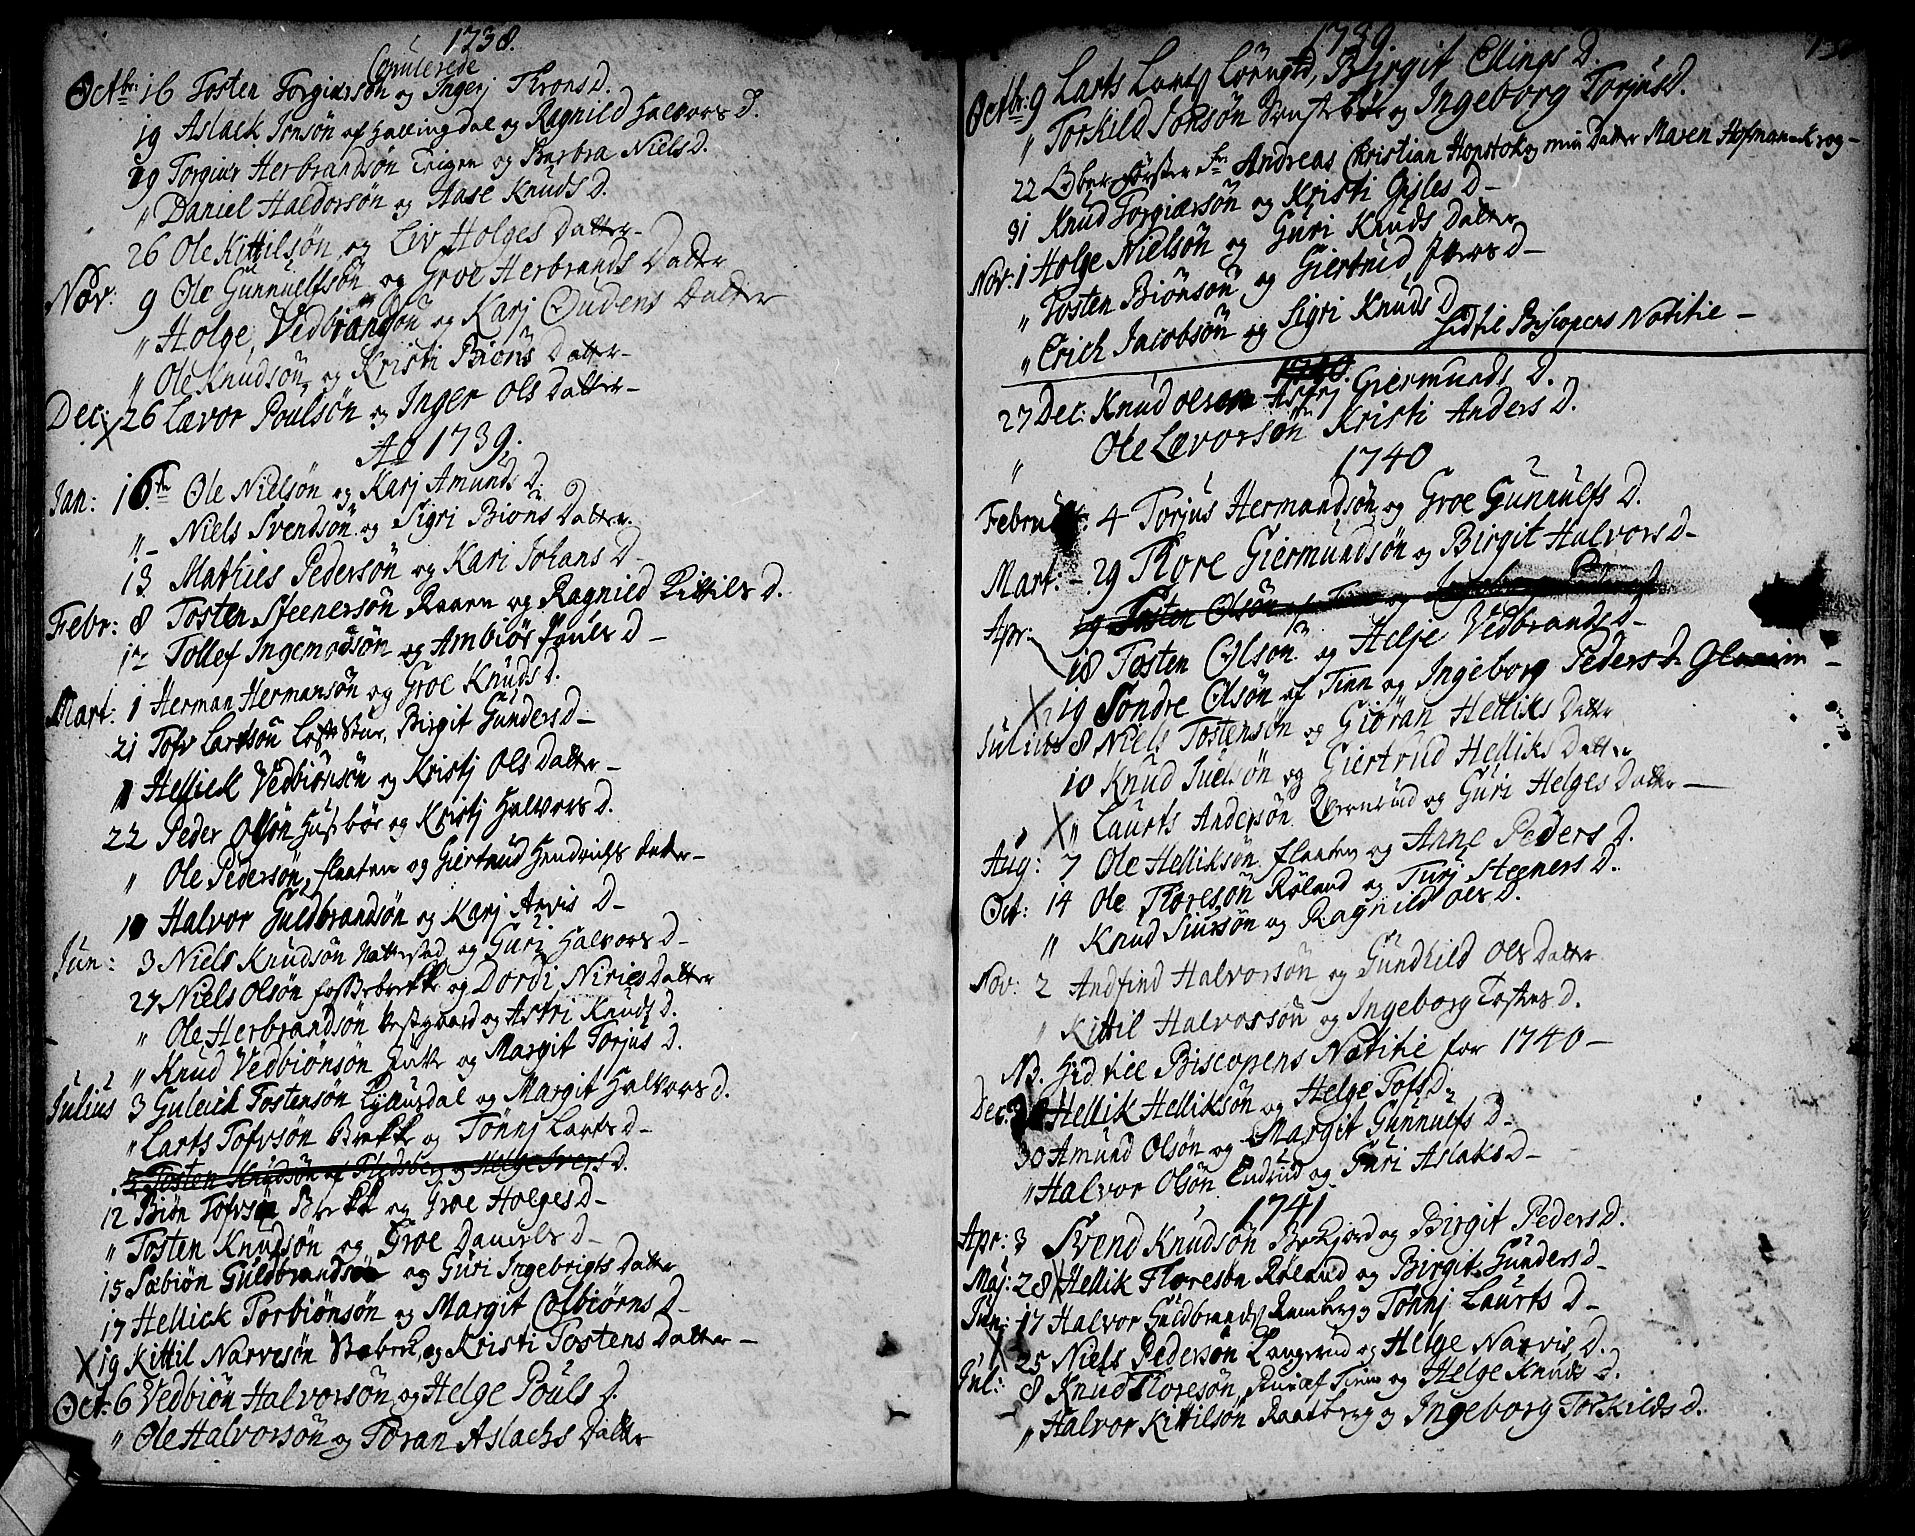 1738.
Copulerede
Octbr: 16 Tosten Torgiersøn og Ingerj Throns D.
19 Aslack Jonsøn af Hallingdal og Ragnild Halvors D.
19 Torgier Herbrandsøn og Barbra Niels D.
" Daniel Haldorsøn og Aase Knuds D.
26 Ole Kittilsøn og Liv Holges Datter
Nov: 9 Ole Gunnuelfsøn og Groe Herbrands Datter
" Holge Vedbrandsøn og Karj Oudens Datter
" Ole Knudsøn og Kristi Biøns Datter
Dec: 26 Lævor Poulsøn og Inger Ols Datter
Ao 1739.
Jan: 16. Ole Nielsøn og Karj Amunds D.
" Niels Svendsøn og Sigri Biøns Datter
13 Mathies Pedersøn og Kari Johans D
Febr: 8 Tosten Steenersøn Raaen og Ragnild Kittils D.
12 Tollef Ingemodsøn og Ambiør Pouls D
Mart: 1 Herman Hermansøn og Groe Knuds D.
21 Tofv Lartsøn Birgit Gunders D
Hellick Vedbiønsøn og Kristj Ols Datter
22 Peder Olsøn Husbør og Kristj Halvors D.
" Ole Pedersøn Flaaten og Giertrud Hendrichs Datter
Halvor Guldbrandsøn og Karj Arvis D
Jun: 3 Niels Knudsøn Nattestad og Guri Halvors D
27 Niels Olsøn Fossebrekke og Dordi Niries Datter
" Ole Herbrandsøn Vestgaard og Astri Knuds D.
" Knud Vedbiønsøn og Margit Torjus D.
Julius 3 Guleick Tostensøn og Margit Halvors D.
" Larts Tofvsøn Brekke og Tønnj Larts D
5 Tosten Knudsøn af Flesberg og Helge Ivers D.
12 Biøn Tofvsøn Brekk og Groe Holges D
" Tosten Knudsøn og Groe D
15 Sæbiøn Guldbrandsøn og Guri Ingebrigts Datter
17 Hellick Torbiønsøn og Margit Colbiørns D
19 Kittil Narvesøn og Kristi Tostens Datter
Oct: 6 Vedbiøn Halvorsøn og Helge Pouls D.
" Ole Halvorsøn og Tøran Aslachs Datter
1739.
Octbr: 9 Larts Larts Birgit Ellings D.
" Torkild Jonsøn og Ingeborg Torjus D.
22 Ober Førster Hr. Andreas Christian Hopstok og min Datter Maren Hofman Krog
31 Knud Torgiersøn og Kristi Gisles D
Nov: 1 Holge Nielsøn og Guri Knuds Datter
" Tosten Biønsøn og Giertrud Ivers D
" Erich Jacobsøn og Sigri Knuds D
Hid til Biscopens Notitie
1740.
27 Dec: Knud Olsøn Astrj Giermunds D.
" Ole Lævorsøn Kristi Anders D.
1740
Februar: 4 Torjus Hermandsøn og Groe Gunnulfs D.
Mart: 29 Thore Giermundsøn og Birgit Halvors D
Apr: 19 Tosten Olsøn af Tinn og Ingeborg
18 Tosten Olsøn og Helje Vedbrands D
19 Sondre Olsøn af Tinn og Ingeborg Peders D.
Julius 8 Niels Tostensøn og Giøran Helliks Datter
10 Knud Juelsøn og Giertrud Helliks Datter
" Laurts Andersøn og Guri Helges Datter
Aug: 7 Ole Helliksøn Flaaten og Anne Peders D.
Oct: 14 Ole Thoresøn Røland og Turj Steeners D.
" Knud Siursøn og Ragnild Ols D.
Nov: 2 Andfind Halvorsøn og Gundhild Ols Datter
" Kittil Halvorsøn og Ingeborg Tostens D.
NB. Hid til Biscopens Notitie for 1740
Dec: Hellik Helliksøn og Helge Tofs D.
30 Amund Olsøn og Margit Gunnulfs D
" Halvor Olsøn Endrud og Guri Aslaks D
1741
Apr: 3 Svend Knudsøn og Birgit Peders D.
Maj: 28 Hellik Thoresøn Røland og Birgit Gunders D
Jun: 17 Halvor Guldbrands Ramberg og Tønnj Laurts D
25 Niels Pedersøn Langerud og Helge Narvis D.
Jul: 8 Knud Thoresøn af Tinn og Helge Knuds D.
" Halvor Kittilsøn Raaeberg og Ingeborg Torkilds D.